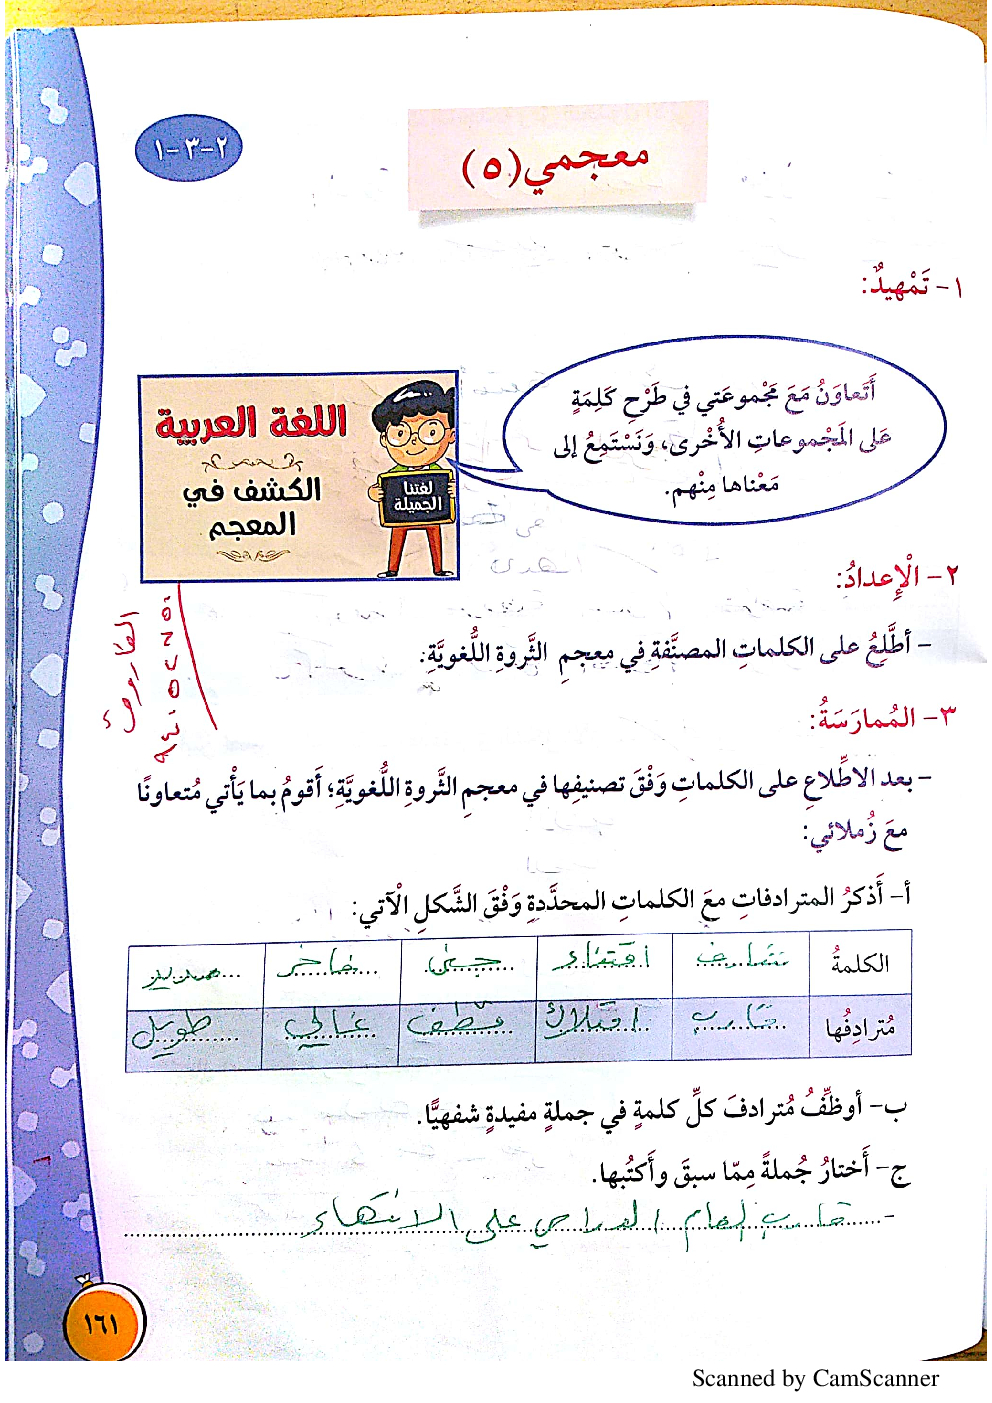 معجمي (٥)
٢-٣-١
١- تَمْهيدٌ:
أَتَعاوَنُ مَعَ مَجْموعَتي في طَرْحِ كَلِمَةٍ
عَلى المَجْموعاتِ الأُخْرى، وَنَسْتَمِعُ إلى
مَعْناها مِنْهم.
اللغة العربية
الكشف في
المعجم
لغتنا
الجميلة
٢- الْإعدادُ:
- أطَّلِعُ على الكلماتِ المصنَّفةِ في معجمِ الثَّروةِ اللُّغويَّةِ.
٣- المُمارَسَةُ:
- بعد الاطِّلاعِ على الكلماتِ وَفْقَ تصنيفِها في معجمِ الثَّروةِ اللُّغويَّةِ؛ أَقومُ بما يَأْتي مُتعاونًا
معَ زُملائي:
أ- أَذكرُ المترادفاتِ معَ الكلماتِ المحدَّدةِ وَفْقَ الشَّكلِ الْآتي:
الكلمةُ شارف اقتناء جنى فاخر مديد
مُترادِفُها قارب امتلاك قطف غالي طويل
ب- أوظِّفُ مُترادفَ كلِّ كلمةٍ في جملةٍ مفيدةٍ شفهيًّا.
ج- أَختارُ جُملةً مِمّا سبقَ وأَكتُبها.
- قارب العام الدراسي على الانتهاء
١٦١
Scanned by CamScanner